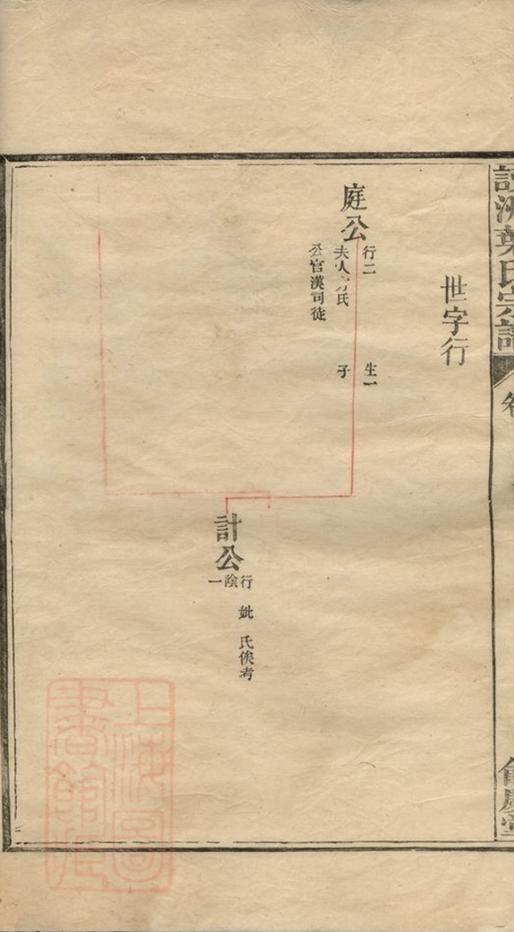 洲葉氏宗譜
卷
餘慶堂
世字行
庭公
行二 生一
夫人方氏 子
公官漢司徒
計公
行陰一
妣 氏俟考
上海圖
書館藏